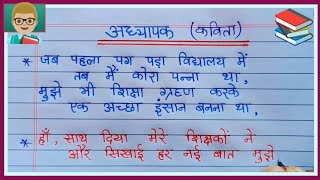 अध्यापक (कविता)
* जब पहला पग पड़ा विद्यालय में
तब मैं कोरा पन्ना था,
मुझे भी शिक्षा ग्रहण करके
एक अच्छा इंसान बनना था,
* हाँ, साथ दिया मेरे शिक्षकों ने
और सिखाई हर नई बात मुझे